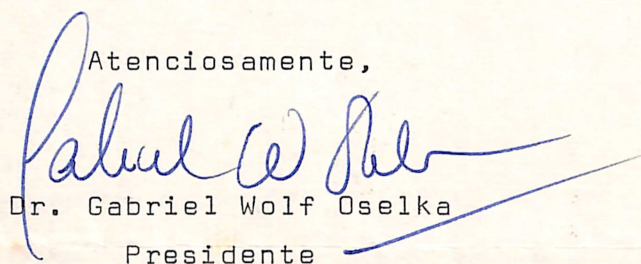 Atenciosamente,
Dr. Gabriel Wolf Oselka
Presidente